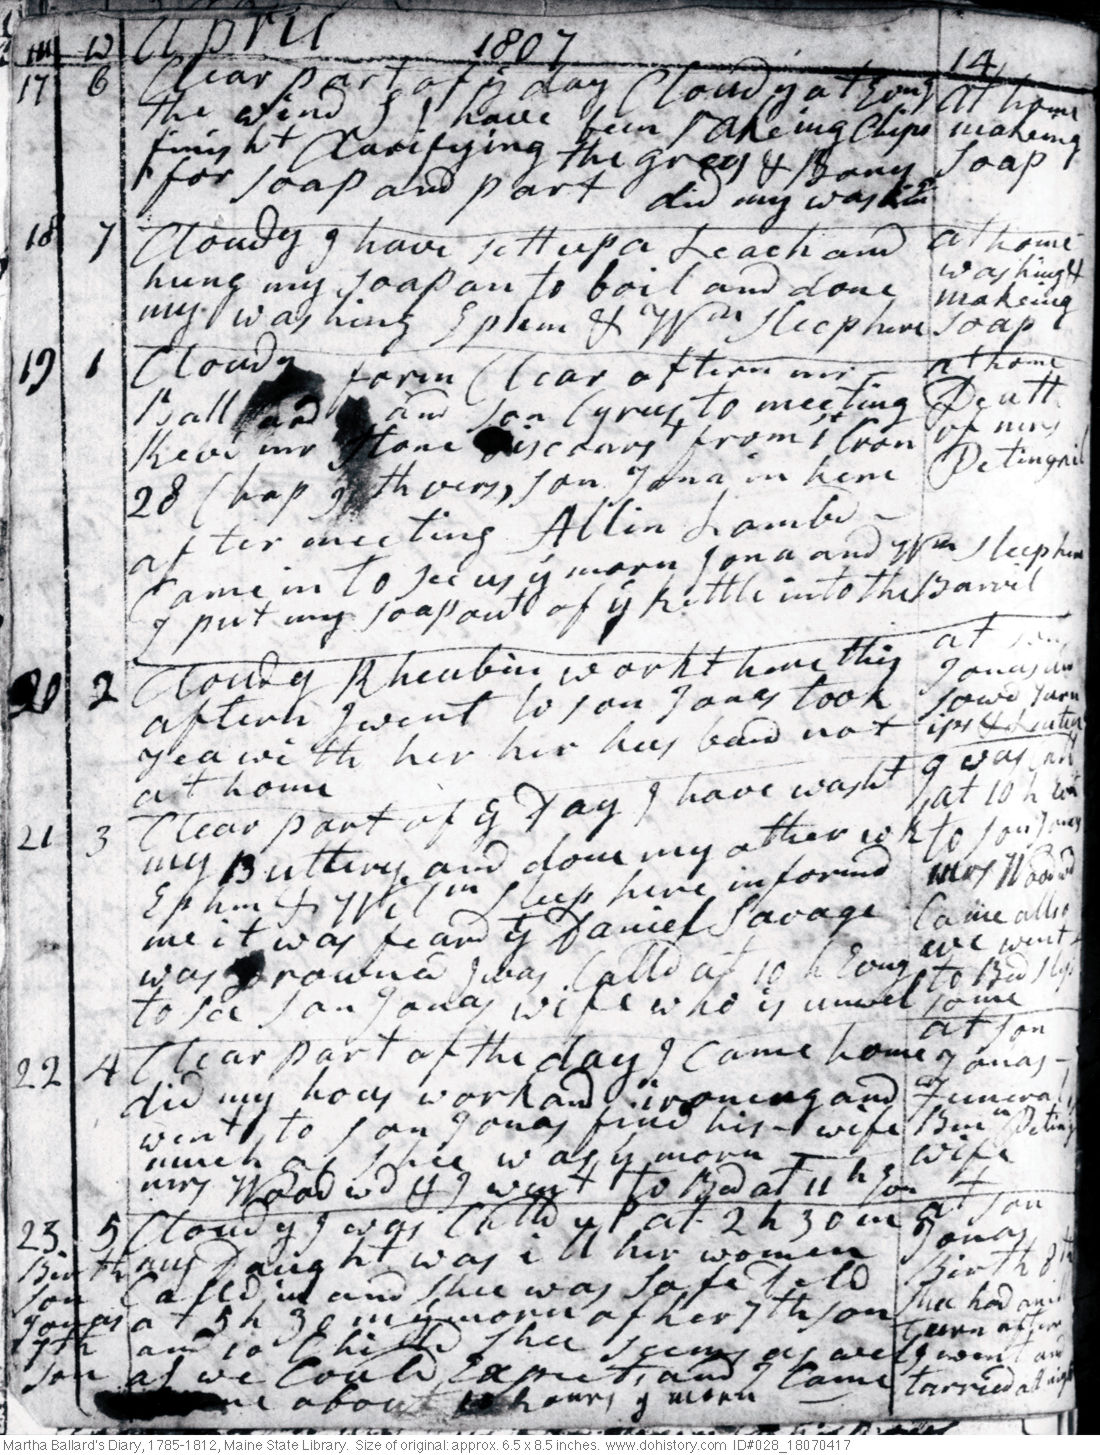 m w April 1807 14
17 6 Clear part of ÿ day Cloudy at Evng
the wind S I have been takeing Chips
finisht Clarifying the grees & Bony
for soap and part did my washin
at home
makeing
soap
18 7 Cloudy I have sett up a Leach and
hung my soap on to boil and done
my washing Ephm & Wm sleep here
at home
washing &
makeing
soap
19 1 Cloudy forin Clear aftern mr
Ball and and son Cyrus to meeting
Revd mr Stone Discours from 1st Cron
28 Chap 9th vers, son Jona in here
after meeting Allin Lambd
Came in to see us ÿ morn Jona and Wm sleep here
I put my soap out of ÿ kettle into the Barril
at home
Death
of mrs
Petingail
20 2 Cloudy Rheubin workt here this
aftern I went to son Jonas took
Tea with her her husband not
at home
at son
Jonas
sowd turn
ips &
21 3 Clear part of ÿ Day I have washt
my Buttery and done my other wk
Ephm & Wm sleep here informd
me it was feard ÿ Daniel Savage
was Drownd I was Calld at 10 h Evng
to see son Jonas wife who is unwel
I was
at 10 h
to son Jonas
mrs Woodwd
Came allso
we went
to Bed slept
some
22 4 Clear part of the day I Came home
did my hous work and ironeng and
went to son Jonas find his wife
much as shee was ÿ morn
mrs Woodwd & I went to Bed at 11 h
at son
Jonas
Funeral
Benn Peting
wife
23 5 Cloudy I was Calld up at 2 h 30 m
our Daught was ill her women
Calld in and shee was safe Deld
at 5 h 30 m ÿ morn of her 7th son
and 10 Child shee seems as wel
as we Could Expect, and I Came
me about 10 hours ÿ morn
Birth
son
Jonas
7th
son
at son
Jonas
Birth 8th
shee had an ill
turn after
I went and
tarried all night
Martha Ballard's Diary, 1785-1812, Maine State Library. Size of original: approx. 6.5 x 8.5 inches. www.dohistory.com ID#028_18070417